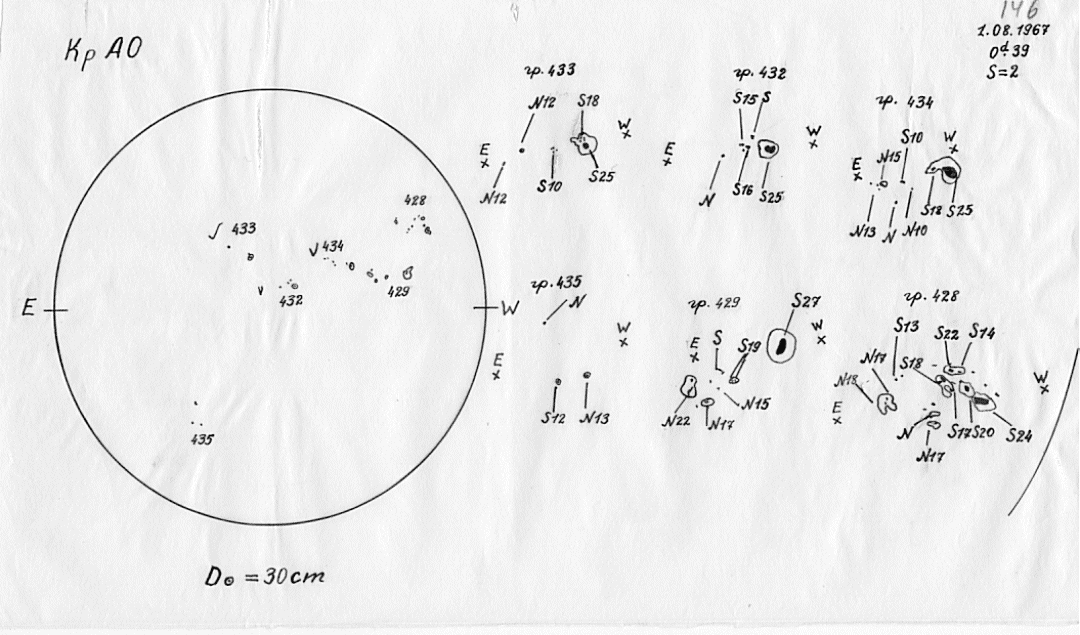 146
1.08.1967
0d39
S=2
Кр АО
E
W
433
434
428
432
429
435
D⊙ = 30cm
гр. 433
N12 S18
E W
N12 S10 S25
гр. 432
S15 S
E W
N S16 S25
гр. 434
S10 W
E N15
S18 S25
N13 N N10
гр. 435
N
W
E
S12 N13
гр. 429
S27
E S S19 W
N22 N17 N15
гр. 428
S13 S22 S14
N17 S18
N18 W
E
N S17 S20 S24
N17